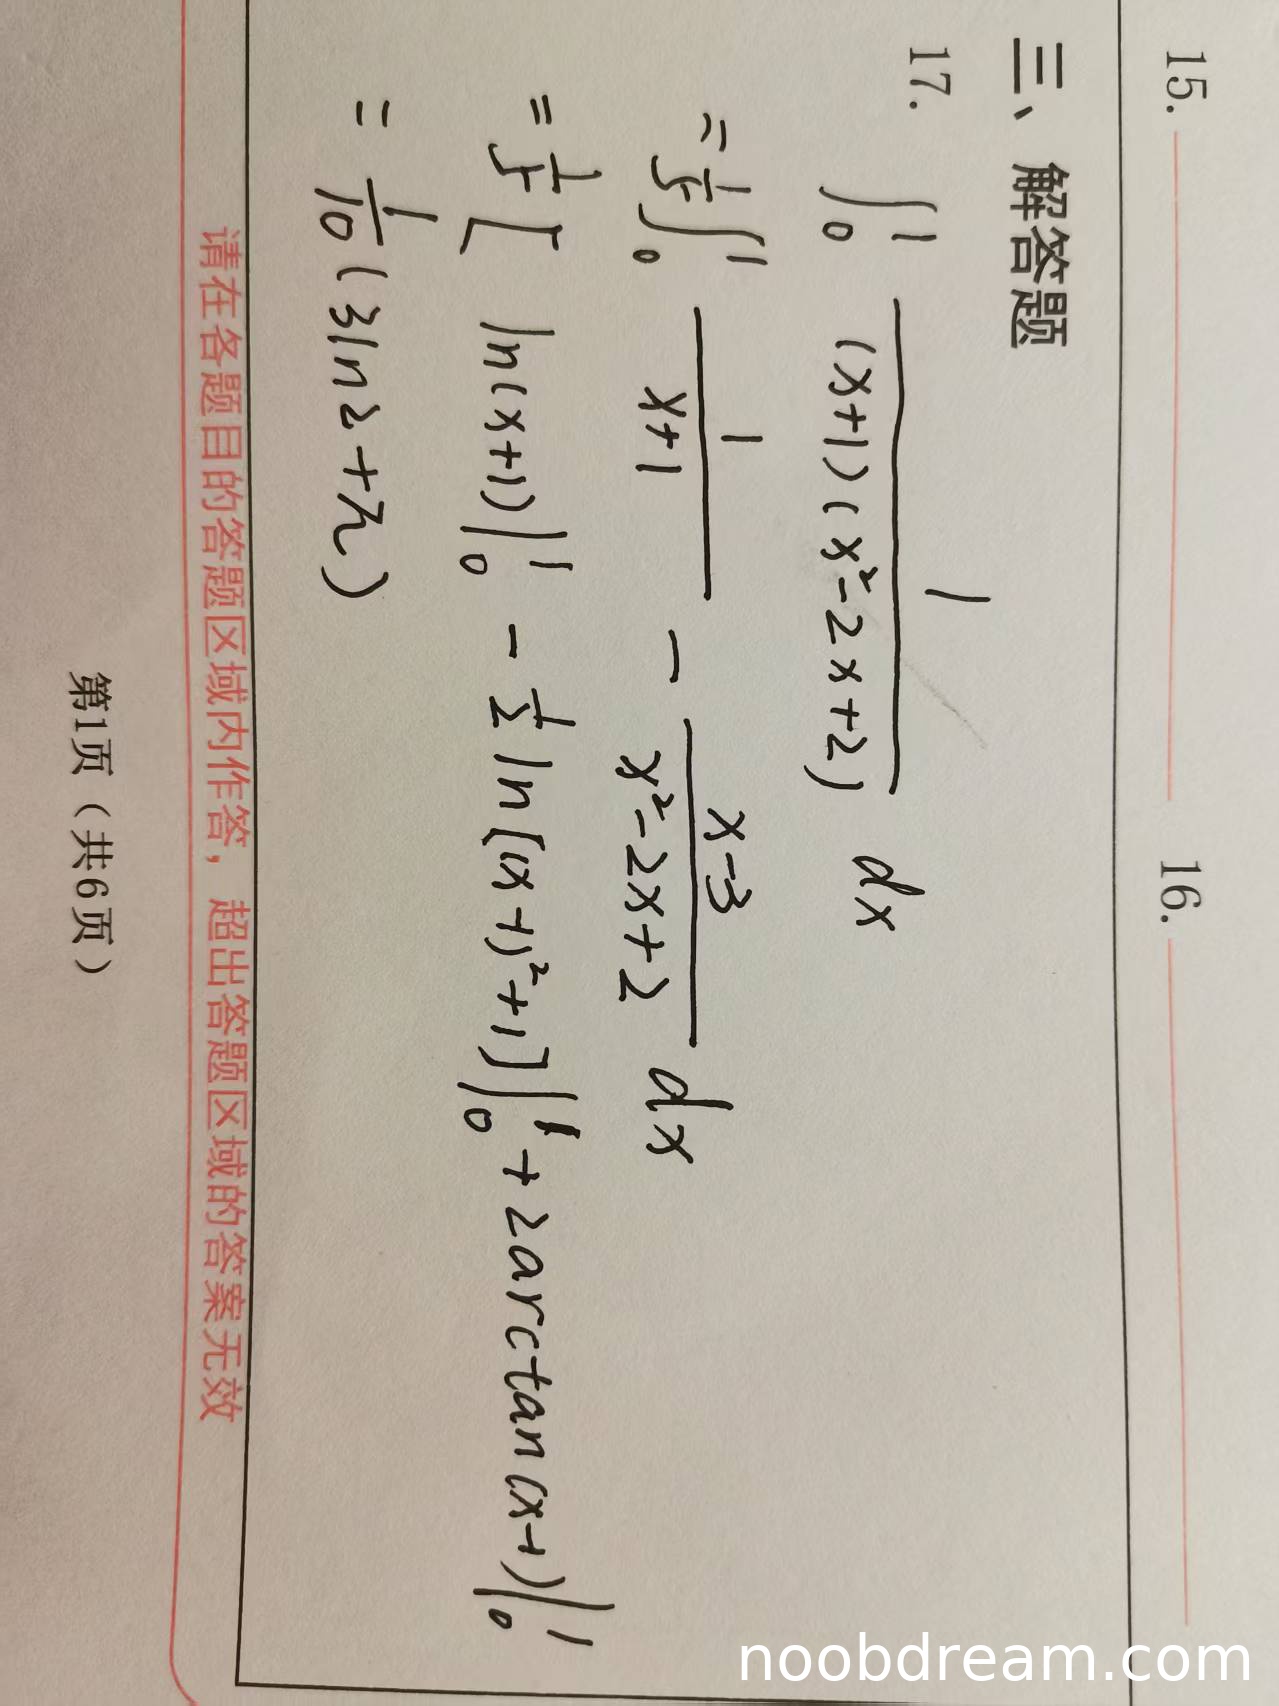 15. 16.
三、解答题
17. ∫₀¹ 1/((x+1)(x²-2x+2)) dx
= 1/5 ∫₀¹ 1/(x+1) - (x-3)/(x²-2x+2) dx
= 1/5 [ ln(x+1)|₀¹ - 1/2 ln[(x-1)²+1]|₀¹ + 2arctan(x-1)|₀¹
= 1/10 (3ln2+π)
请在各题目的答题区域内作答，超出答题区域的答案无效
第1页（共6页）
noobdream.com